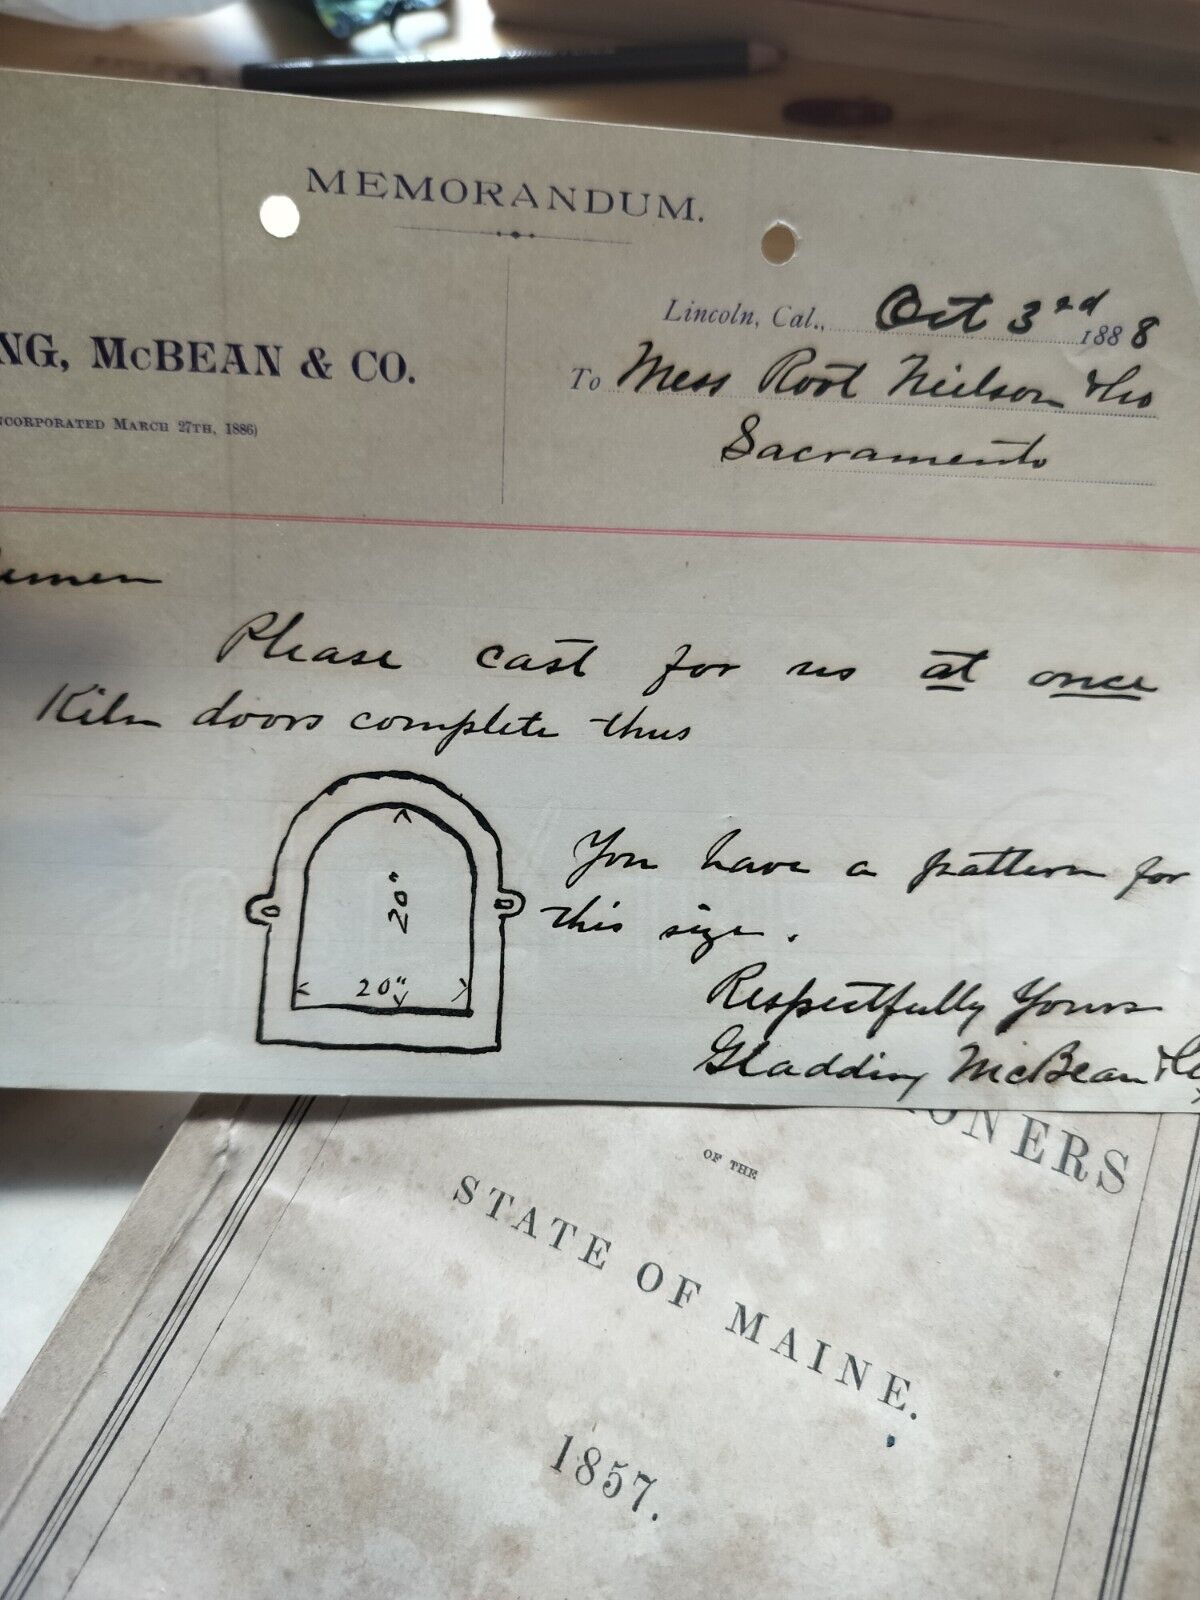 MEMORANDUM.
Lincoln, Cal., Oct 3rd 1888
NG, McBEAN & CO.
To Mess Root Neilson & Co
NCORPORATED MARCH 27TH, 1886)
Sacramento
emen
Please cast for us at once
Kiln doors complete thus
20"
20"
You have a pattern for
this size.
Respectfully Yours
Gladding McBean & Co
ONERS
OF THE
STATE OF MAINE.
1857.